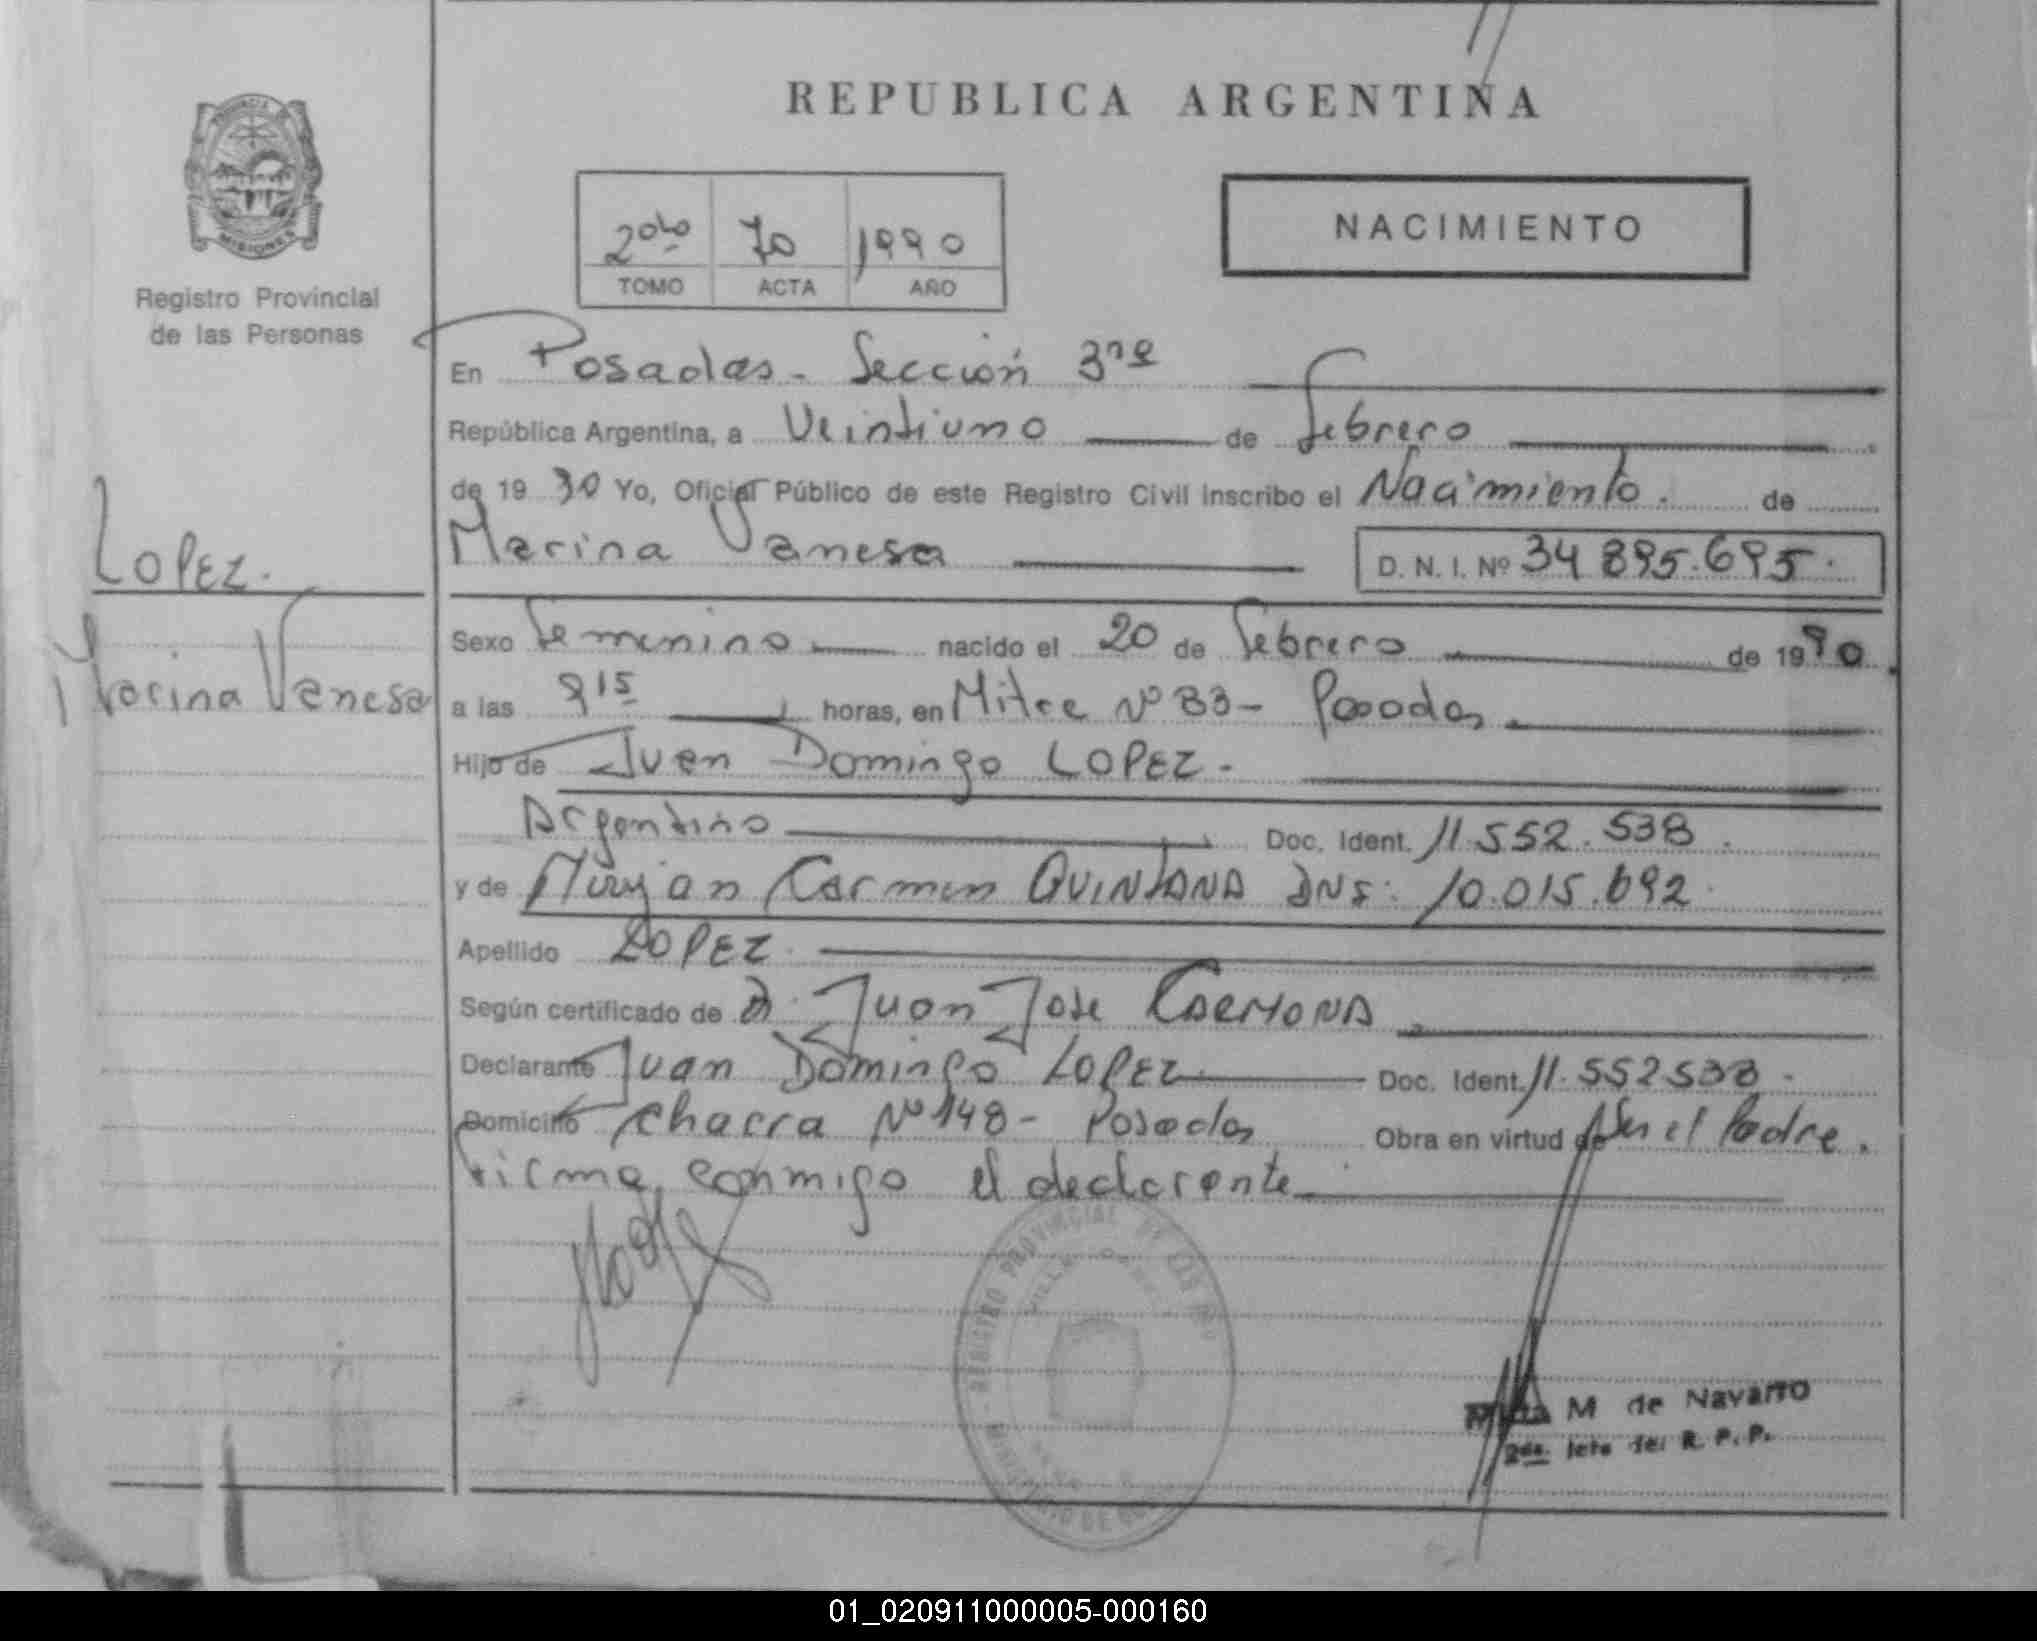 REPUBLICA ARGENTINA
MISIONES
Registro Provincial
de las Personas
2do 70 1990
TOMO ACTA AÑO
NACIMIENTO
En Posadas - Sección 3ra
República Argentina, a Veintiuno de febrero
de 1990 Yo, Oficial Público de este Registro Civil inscribo el Nacimiento. de
Marina Vanesa D. N. I. Nº 34 895.695.
Lopez.
Marina Vanesa
Sexo femenino nacido el 20 de febrero de 1990.
a las 9 15 horas, en Mitre Nº 83 - Posadas
Hijo de Juan Domingo LOPEZ.
Argentino Doc. Ident. 11.552.538.
y de Miryan Carmen QUINTANA DNI: 10.015.692.
Apellido LOPEZ.
Según certificado de D. Juan Jose CARMONA
Declarante Juan Domingo LOPEZ Doc. Ident. 11.552538 -
Domicilio Chacra Nº 148 - Posadas Obra en virtud de Ser el Padre.
firma conmigo el declarante
REGISTRO PROVINCIAL DE LAS
MINISTERIO DE
M de Navarro
2da. Jefe del R. P. P.
01_020911000005-000160